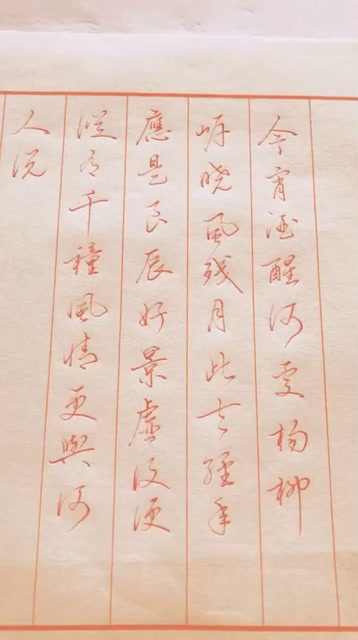 今宵酒醒何處楊柳
岸曉風殘月此去經年
應是良辰好景虛設便
縱有千種風情更與何
人說